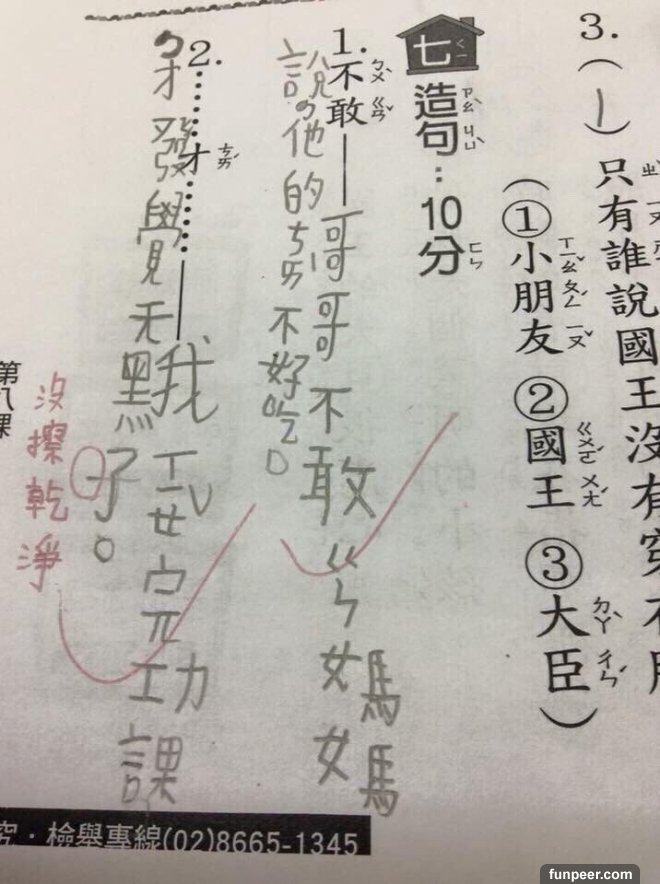 3.(1)只有誰說國王沒有穿
(①小朋友②國王③大臣)
七 造句:10分
1.不敢——哥哥不敢ㄍㄣ媽媽
說他的ㄘㄞ不好吃。
2.……才……——我完功課
才發覺天黑了。
沒擦乾淨
第八課
究‧檢舉專線(02)8665-1345
funpeer.com